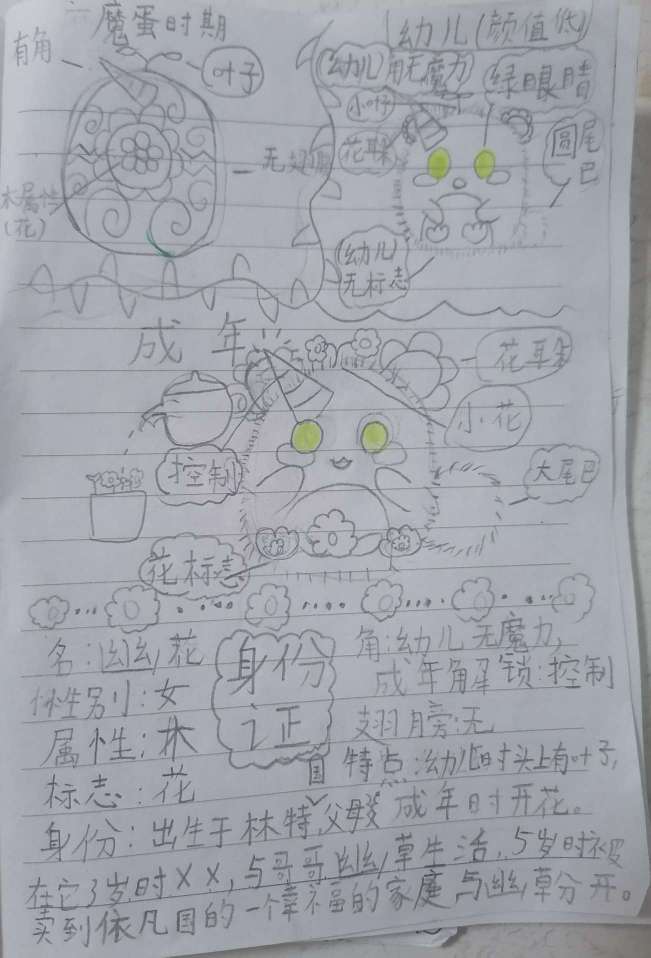 魔蛋时期
有角
叶子
无翅膀
木属性
(花)
幼儿(颜值低)
(幼儿)用无魔力
绿眼睛
小叶子
花耳朵
圆尾巴
(幼儿)
无标志
成年
花耳朵
小花
控制
大尾巴
花标志
名:幽幽花
性别:女
属性:木
标志:花
身份证
角:幼儿无魔力,
成年解锁:控制
翅膀:无
特点:幼儿时头上有叶子,
成年时开花。
身份:出生于林特国,父母
在它3岁时XX,与哥哥幽幽草生活,5岁时被
卖到依凡国的一个幸福的家庭与幽幽草分开。